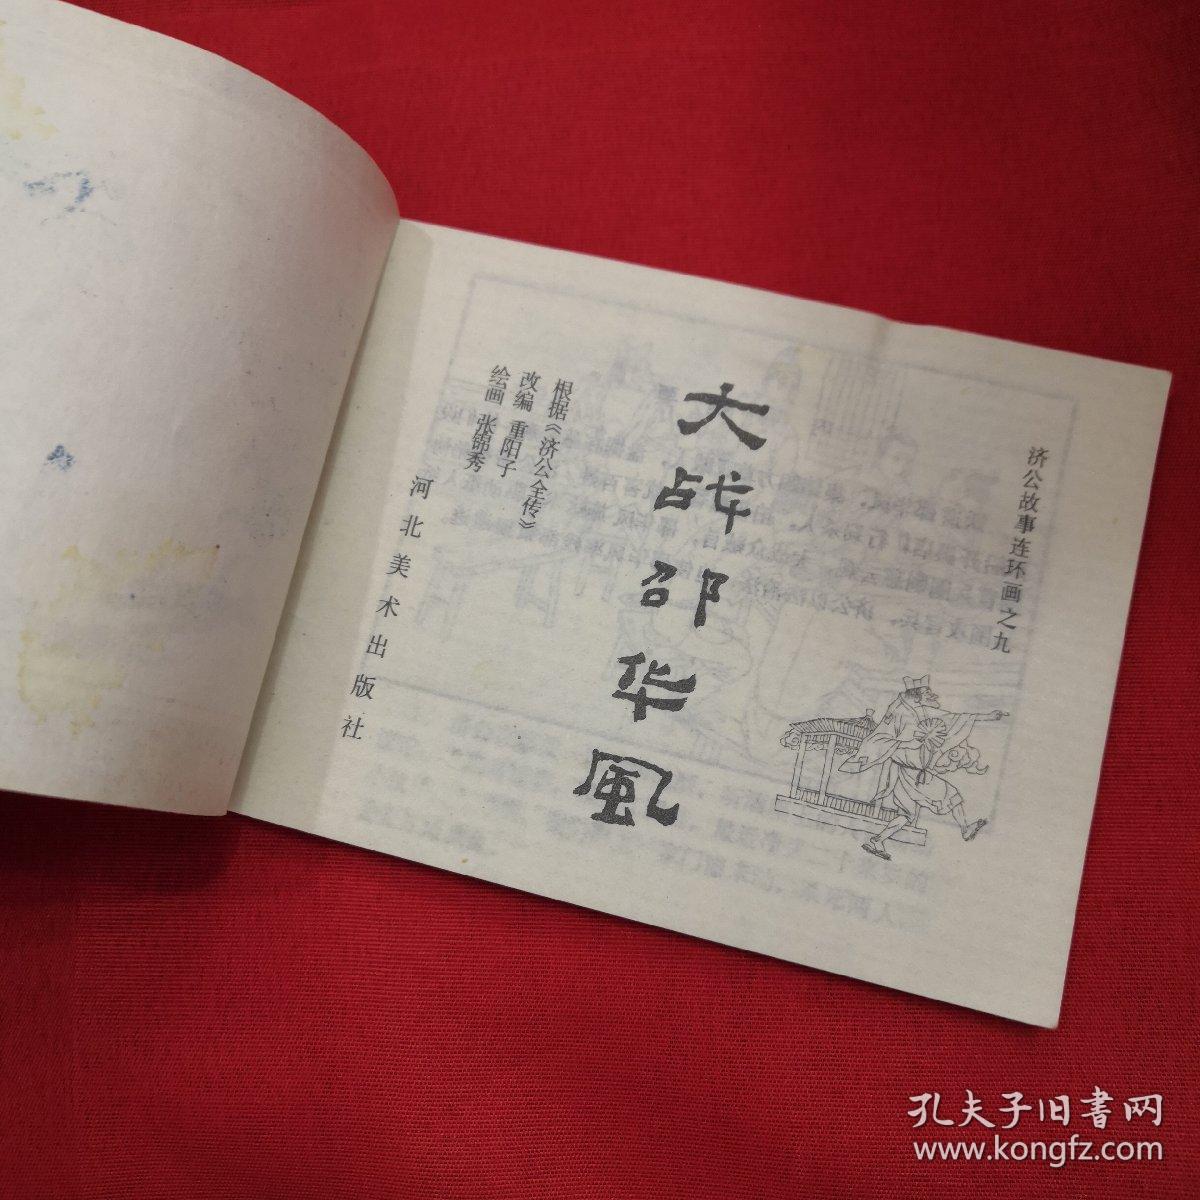 济公故事连环画之九
大战邵华風
根据《济公全传》
改编 重阳子
绘画 张锦秀
河北美术出版社
孔夫子旧書网
www.kongfz.com